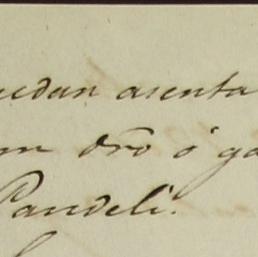 uedan asenta
m dro ó ga
Pandeli.